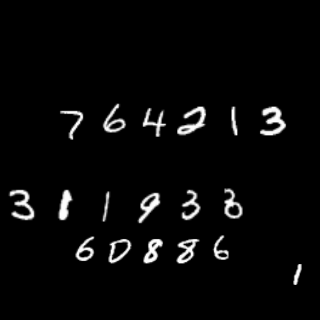 764213
311933
60886
1